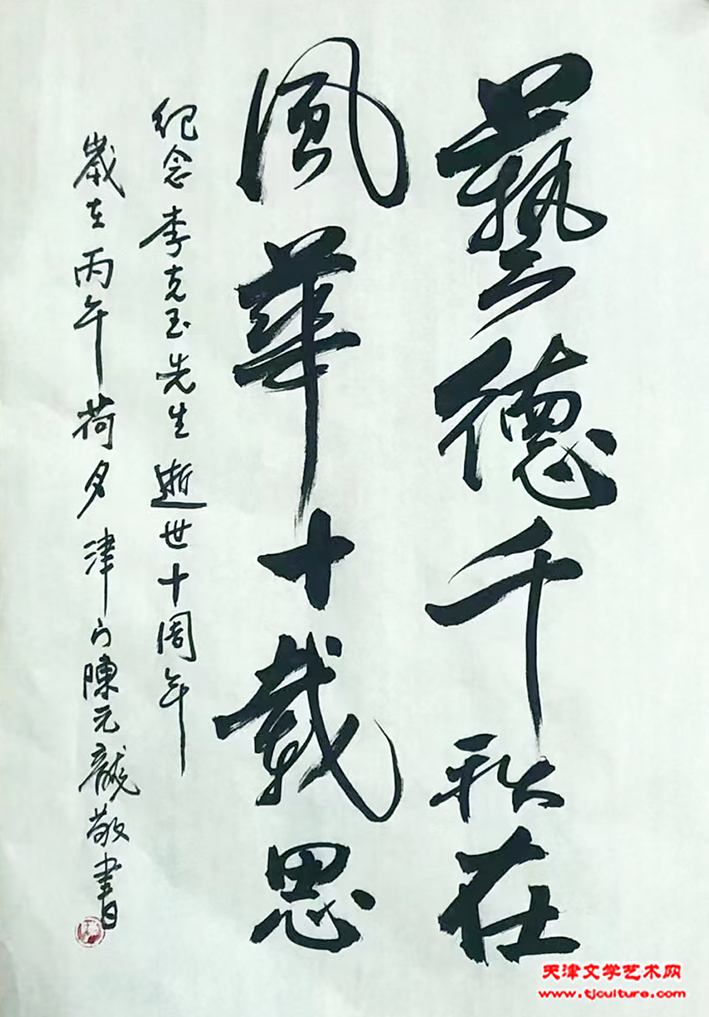 藝德千秋在
風華十載思
纪念李克玉先生逝世十周年
歲在丙午荷月津门陳元龍敬書
天津文学艺术网
www.tjculture.com